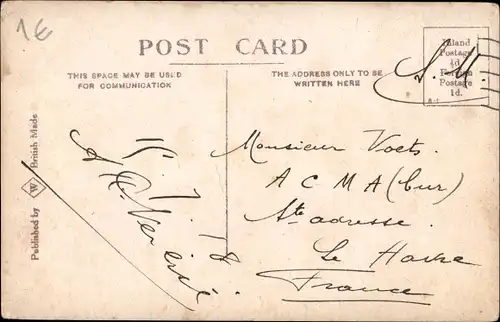 1€
POST CARD
THIS SPACE MAY BE USED
FOR COMMUNICATION
THE ADDRESS ONLY TO BE
WRITTEN HERE
Inland
Postage
½d.
Foreign
Postage
1d.
S. M.
Published by W British Made
15.7.18
Monsieur Voets
A C M A (bur)
Ste adresse
Le Havre
France